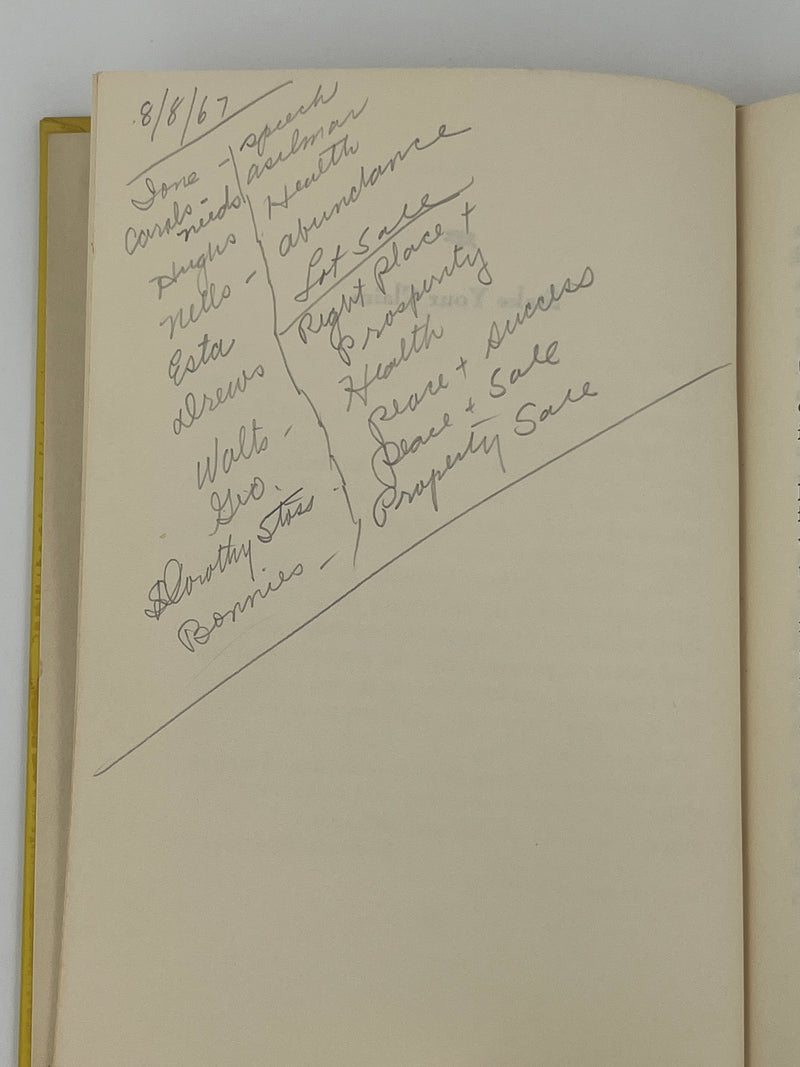 8/8/67
Ione - speech
Carols - needs asilmar
Hughs Health
Nells - abundance
Esta Lot Sale
Drews Right Place +
Prosperity
Walts - Health
Geo. Peace + Success
Dorothy Stoss - Peace + Sale
Bonnies - Property Sale